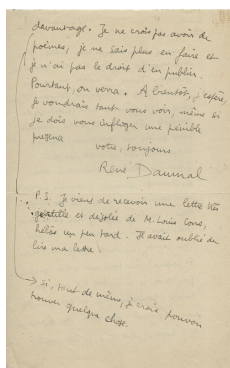 davantage. Je ne crois pas avoir de
poèmes, je ne sais plus en faire et
je n'ai pas le droit d'en publier.
Pourtant, on verra. A bientôt, j'espère,
je voudrais tant vous voir, même si
je dois vous infliger une pénible
votre, toujours
René Daumal
P.S. Je viens de recevoir une lettre très
gentille et désolée de M. Louis Cons,
hélas un peu tard. Il avait oublié de
lire ma lettre.
→ Si, tout de même, je crois pouvoir
trouver quelque chose.